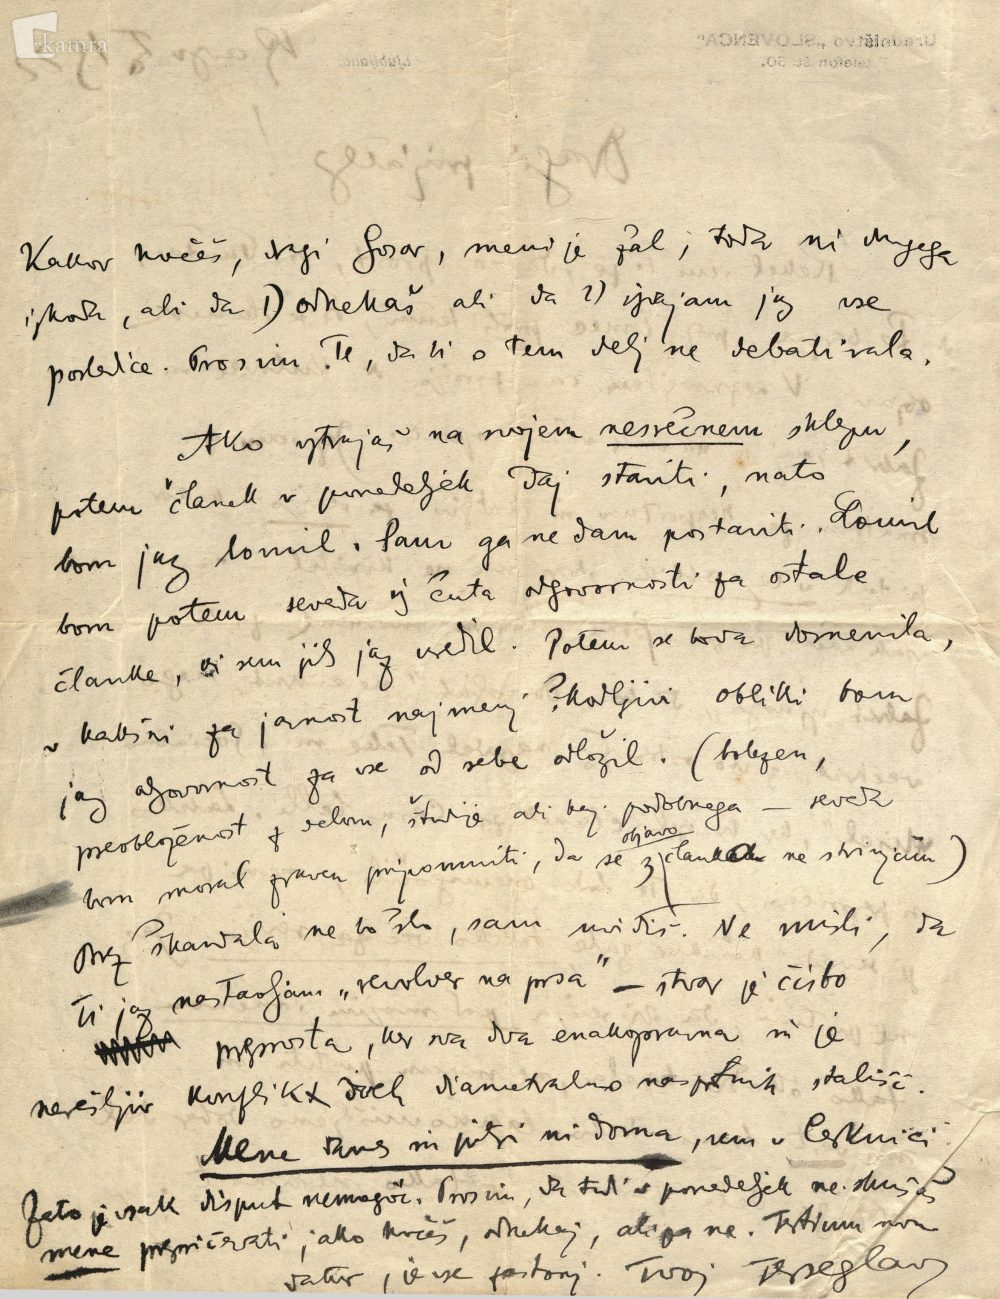 kamra
Uredništvo „SLOVENCA“
Telefon št. 50.
Ljubljana,
Dragi prijatelj!
Kakor hočeš, dragi Gosar, meni je žal, toda ni drugega
izhoda, ali da 1) odnehaš ali da 2) izvajam jaz vse
posledice. Prosim Te, da bi o tem delj ne debatirala.
Ako vztrajaš na svojem nesrečnem sklepu,
potem članek v ponedeljek daj staviti, nato
bom jaz lomil. Sam ga ne dam postaviti. Lomil
bom potem seveda iz čuta odgovornosti za ostale
članke, ki sem jih jaz uredil. Potem se bova domenila,
v kakšni za javnost najmenj škodljivi obliki bom
jaz odgovornost za vse od sebe odložil. (bolezen,
preobloženost z delom, študije ali kaj podobnega — seveda
bom moral zraven pripomniti, da se z objavo člankov ne strinjam)
Brez škandala ne bo šlo, sam uvidiš. Ne misli, da
Ti jaz nastavljam „revolver na prsa“ — stvar je čisto
preprosta, ker sva dva enakopravna in je
nerešljiv konflikt dveh diametralno nasprotnih stališč.
Mene danes in jutri ni doma, sem v Cerknici.
Zato je vsak disput nemogoč. Prosim, da tudi v ponedeljek ne skušaš
mene prepričevati, ako hočeš, odnehaj, ali pa ne. Tertium non
datur, je vse zastonj. Tvoj Terseglav